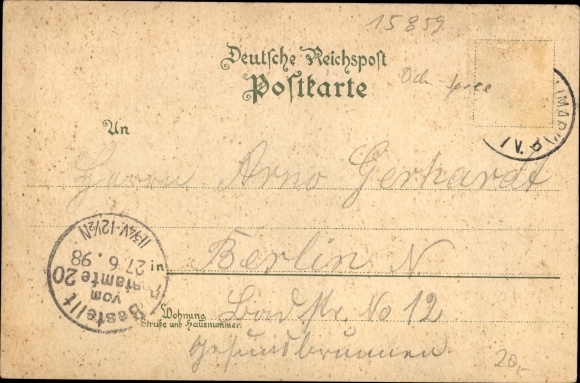 15859
Deutsche Reichspost
Postkarte
An
Herrn Arno Gerhardt
in Berlin N
Wohnung Badstr. No 12
Straße und Hausnummer
Gesundbrunnen
Bestellt
vom
Postamte 20
27.6.98
11¾V-12½N
20,-